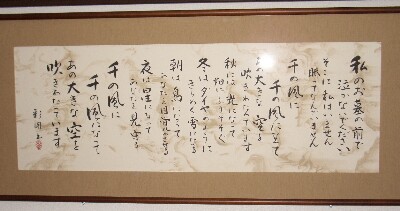 私のお墓の前で
泣かないでください
そこに私はいません
眠ってなんかいません
千の風に
千の風になって
あの大きな空を
吹きわたっています
秋には光になって
畑にふりそそぐ
冬はダイヤのように
きらめく雪になる
朝は鳥になって
あなたを目覚めさせる
夜は星になって
あなたを見守る
千の風に
千の風になって
あの大きな空を
吹きわたっています